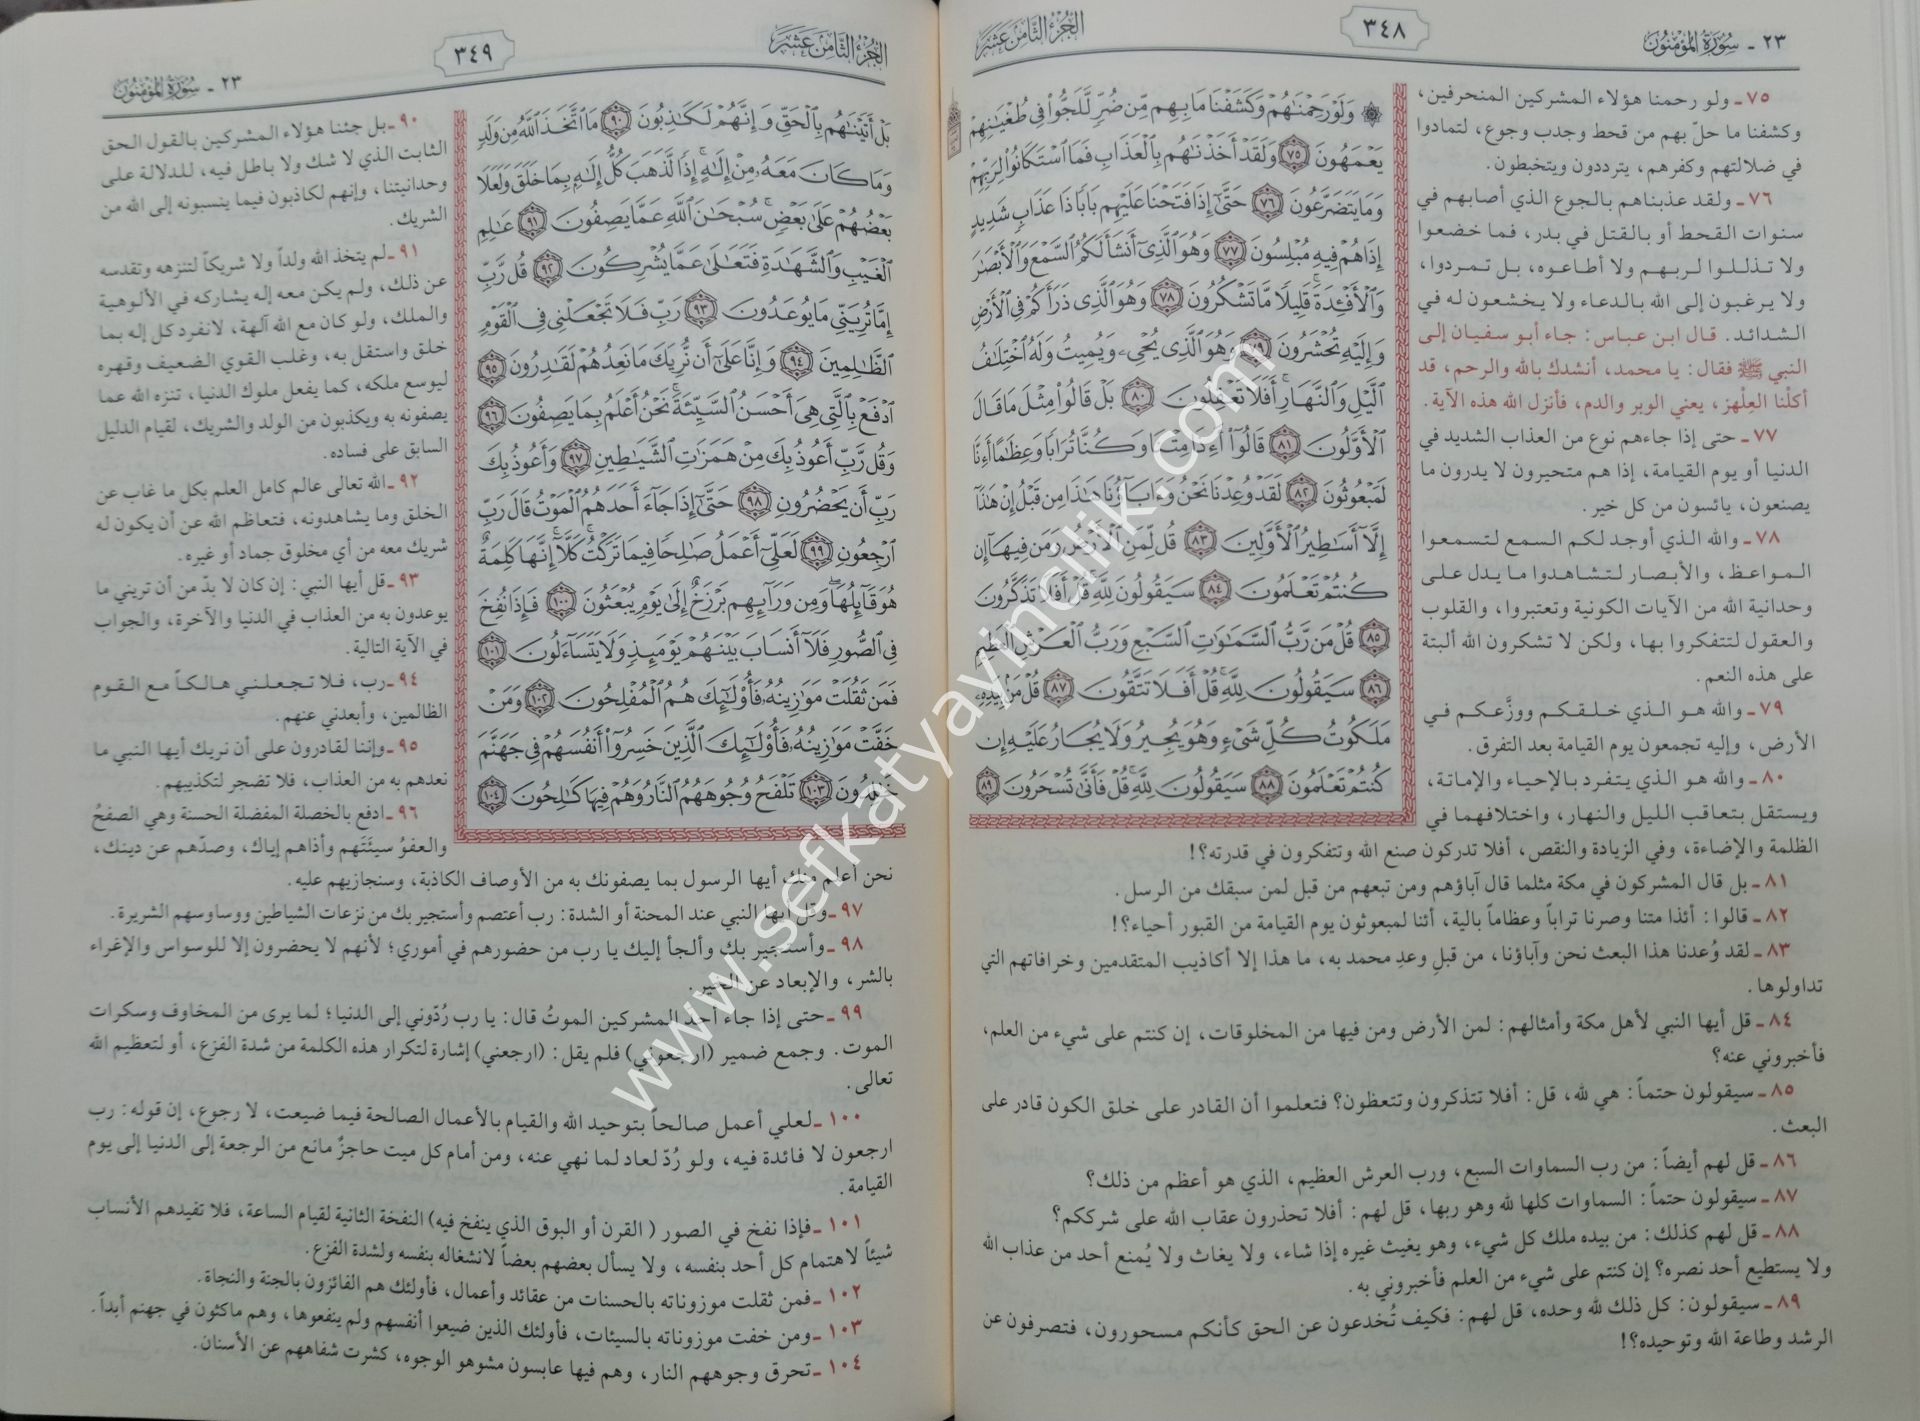 ٢٣ - سُورَةُ المُؤْمِنُونَ
٣٤٨
الجُزْءُ الثَّامِنَ عَشَرَ
۞ وَلَوْ رَحِمْنَٰهُمْ وَكَشَفْنَا مَا بِهِم مِّن ضُرٍّ لَّلَجُّوا۟ فِى طُغْيَٰنِهِمْ
يَعْمَهُونَ ٧٥ وَلَقَدْ أَخَذْنَٰهُم بِٱلْعَذَابِ فَمَا ٱسْتَكَانُوا۟ لِرَبِّهِمْ
وَمَا يَتَضَرَّعُونَ ٧٦ حَتَّىٰٓ إِذَا فَتَحْنَا عَلَيْهِم بَابًا ذَا عَذَابٍ شَدِيدٍ
إِذَا هُمْ فِيهِ مُبْلِسُونَ ٧٧ وَهُوَ ٱلَّذِىٓ أَنشَأَ لَكُمُ ٱلسَّمْعَ وَٱلْأَبْصَٰرَ
وَٱلْأَفْـِٔدَةَ ۚ قَلِيلًا مَّا تَشْكُرُونَ ٧٨ وَهُوَ ٱلَّذِى ذَرَأَكُمْ فِى ٱلْأَرْضِ
وَإِلَيْهِ تُحْشَرُونَ ٧٩ وَهُوَ ٱلَّذِى يُحْىِۦ وَيُمِيتُ وَلَهُ ٱخْتِلَٰفُ
ٱلَّيْلِ وَٱلنَّهَارِ ۚ أَفَلَا تَعْقِلُونَ ٨٠ بَلْ قَالُوا۟ مِثْلَ مَا قَالَ
ٱلْأَوَّلُونَ ٨١ قَالُوٓا۟ أَءِذَا مِتْنَا وَكُنَّا تُرَابًا وَعِظَٰمًا أَءِنَّا
لَمَبْعُوثُونَ ٨٢ لَقَدْ وُعِدْنَا نَحْنُ وَءَابَآؤُنَا هَٰذَا مِن قَبْلُ إِنْ هَٰذَآ
إِلَّآ أَسَٰطِيرُ ٱلْأَوَّلِينَ ٨٣ قُل لِّمَنِ ٱلْأَرْضُ وَمَن فِيهَآ إِن
كُنتُمْ تَعْلَمُونَ ٨٤ سَيَقُولُونَ لِلَّهِ ۚ قُلْ أَفَلَا تَذَكَّرُونَ
٨٥ قُلْ مَن رَّبُّ ٱلسَّمَٰوَٰتِ ٱلسَّبْعِ وَرَبُّ ٱلْعَرْشِ ٱلْعَظِيمِ
٨٦ سَيَقُولُونَ لِلَّهِ ۚ قُلْ أَفَلَا تَتَّقُونَ ٨٧ قُلْ مَنۢ بِيَدِهِۦ
مَلَكُوتُ كُلِّ شَىْءٍ وَهُوَ يُجِيرُ وَلَا يُجَارُ عَلَيْهِ إِن
كُنتُمْ تَعْلَمُونَ ٨٨ سَيَقُولُونَ لِلَّهِ ۚ قُلْ فَأَنَّىٰ تُسْحَرُونَ ٨٩
٧٥ ـ ولو رحمنا هؤلاء المشركين المنحرفين،
وكشفنا ما حلّ بهم من قحط وجدب وجوع، لتمادوا
في ضلالتهم وكفرهم، يترددون ويتخبطون.
٧٦ ـ ولقد عذبناهم بالجوع الذي أصابهم في
سنوات القحط أو بالقتل في بدر، فما خضعوا
ولا تذللوا لربهم ولا أطاعوه، بل تمردوا،
ولا يرغبون إلى الله بالدعاء ولا يخشعون له في
الشدائد. قال ابن عباس: جاء أبو سفيان إلى
النبي ﷺ فقال: يا محمد، أنشدك بالله والرحم، قد
أكلْنا العِلْهز، يعني الوبر والدم، فأنزل الله هذه الآية.
٧٧ ـ حتى إذا جاءهم نوع من العذاب الشديد في
الدنيا أو يوم القيامة، إذا هم متحيرون لا يدرون ما
يصنعون، يائسون من كل خير.
٧٨ ـ والله الذي أوجد لكم السمع لتسمعوا
المواعظ، والأبصار لتشاهدوا ما يدل على
وحدانية الله من الآيات الكونية وتعتبروا، والقلوب
والعقول لتتفكروا بها، ولكن لا تشكرون الله ألبتة
على هذه النعم.
٧٩ ـ والله هو الذي خلقكم ووزَّعكم في
الأرض، وإليه تجمعون يوم القيامة بعد التفرق.
٨٠ ـ والله هو الذي يتفرد بالإحياء والإماتة،
ويستقل بتعاقب الليل والنهار، واختلافهما في
الظلمة والإضاءة، وفي الزيادة والنقص، أفلا تدركون صنع الله وتتفكرون في قدرته؟!
٨١ ـ بل قال المشركون في مكة مثلما قال آباؤهم ومن تبعهم من قبل لمن سبقك من الرسل.
٨٢ ـ قالوا: أئذا متنا وصرنا تراباً وعظاماً بالية، أئنا لمبعوثون يوم القيامة من القبور أحياء؟!
٨٣ ـ لقد وُعدنا هذا البعث نحن وآباؤنا، من قبلِ وعدِ محمد به، ما هذا إلا أكاذيب المتقدمين وخرافاتهم التي
تداولوها.
٨٤ ـ قل أيها النبي لأهل مكة وأمثالهم: لمن الأرض ومن فيها من المخلوقات، إن كنتم على شيء من العلم،
فأخبروني عنه؟
٨٥ ـ سيقولون حتماً: هي لله، قل: أفلا تتذكرون وتتعظون؟ فتعلموا أن القادر على خلق الكون قادر على
البعث.
٨٦ ـ قل لهم أيضاً: من رب السماوات السبع، ورب العرش العظيم، الذي هو أعظم من ذلك؟
٨٧ ـ سيقولون حتماً: السماوات كلها لله وهو ربها، قل لهم: أفلا تحذرون عقاب الله على شرككم؟
٨٨ ـ قل لهم كذلك: من بيده ملك كل شيء، وهو يغيث غيره إذا شاء، ولا يغاث ولا يُمنع أحد من عذاب الله
ولا يستطيع أحد نصره؟ إن كنتم على شيء من العلم فأخبروني به.
٨٩ ـ سيقولون: كل ذلك لله وحده، قل لهم: فكيف تُخدعون عن الحق كأنكم مسحورون، فتصرفون عن
الرشد وطاعة الله وتوحيده؟!
الجُزْءُ الثَّامِنَ عَشَرَ
٣٤٩
٢٣ - سُورَةُ المُؤْمِنُونَ
بَلْ أَتَيْنَٰهُم بِٱلْحَقِّ وَإِنَّهُمْ لَكَٰذِبُونَ ٩٠ مَا ٱتَّخَذَ ٱللَّهُ مِن وَلَدٍ
وَمَا كَانَ مَعَهُۥ مِنْ إِلَٰهٍ ۚ إِذًا لَّذَهَبَ كُلُّ إِلَٰهٍۭ بِمَا خَلَقَ وَلَعَلَا
بَعْضُهُمْ عَلَىٰ بَعْضٍ ۚ سُبْحَٰنَ ٱللَّهِ عَمَّا يَصِفُونَ ٩١ عَٰلِمِ
ٱلْغَيْبِ وَٱلشَّهَٰدَةِ فَتَعَٰلَىٰ عَمَّا يُشْرِكُونَ ٩٢ قُل رَّبِّ
إِمَّا تُرِيَنِّى مَا يُوعَدُونَ ٩٣ رَبِّ فَلَا تَجْعَلْنِى فِى ٱلْقَوْمِ
ٱلظَّٰلِمِينَ ٩٤ وَإِنَّا عَلَىٰٓ أَن نُّرِيَكَ مَا نَعِدُهُمْ لَقَٰدِرُونَ ٩٥
ٱدْفَعْ بِٱلَّتِى هِىَ أَحْسَنُ ٱلسَّيِّئَةَ ۚ نَحْنُ أَعْلَمُ بِمَا يَصِفُونَ ٩٦
وَقُل رَّبِّ أَعُوذُ بِكَ مِنْ هَمَزَٰتِ ٱلشَّيَٰطِينِ ٩٧ وَأَعُوذُ بِكَ
رَبِّ أَن يَحْضُرُونِ ٩٨ حَتَّىٰٓ إِذَا جَآءَ أَحَدَهُمُ ٱلْمَوْتُ قَالَ رَبِّ
ٱرْجِعُونِ ٩٩ لَعَلِّىٓ أَعْمَلُ صَٰلِحًا فِيمَا تَرَكْتُ ۚ كَلَّآ ۚ إِنَّهَا كَلِمَةٌ
هُوَ قَآئِلُهَا ۖ وَمِن وَرَآئِهِم بَرْزَخٌ إِلَىٰ يَوْمِ يُبْعَثُونَ ١٠٠ فَإِذَا نُفِخَ
فِى ٱلصُّورِ فَلَآ أَنسَابَ بَيْنَهُمْ يَوْمَئِذٍ وَلَا يَتَسَآءَلُونَ ١٠١
فَمَن ثَقُلَتْ مَوَٰزِينُهُۥ فَأُو۟لَٰٓئِكَ هُمُ ٱلْمُفْلِحُونَ ١٠٢ وَمَنْ
خَفَّتْ مَوَٰزِينُهُۥ فَأُو۟لَٰٓئِكَ ٱلَّذِينَ خَسِرُوٓا۟ أَنفُسَهُمْ فِى جَهَنَّمَ
خَٰلِدُونَ ١٠٣ تَلْفَحُ وُجُوهَهُمُ ٱلنَّارُ وَهُمْ فِيهَا كَٰلِحُونَ ١٠٤
٩٠ ـ بل جئنا هؤلاء المشركين بالقول الحق
الثابت الذي لا شك ولا باطل فيه، للدلالة على
وحدانيتنا، وإنهم لكاذبون فيما ينسبونه إلى الله من
الشريك.
٩١ ـ لم يتخذ الله ولداً ولا شريكاً لتنزهه وتقدسه
عن ذلك، ولم يكن معه إله يشاركه في الألوهية
والملك، ولو كان مع الله آلهة، لانفرد كل إله بما
خلق واستقل به، وغلب القوي الضعيف وقهره
ليوسع ملكه، كما يفعل ملوك الدنيا، تنزه الله عما
يصفونه به ويكذبون من الولد والشريك، لقيام الدليل
السابق على فساده.
٩٢ ـ الله تعالى عالم كامل العلم بكل ما غاب عن
الخلق وما يشاهدونه، فتعاظم الله عن أن يكون له
شريك معه من أي مخلوق جماد أو غيره.
٩٣ ـ قل أيها النبي: إن كان لا بدّ من أن تريني ما
يوعدون به من العذاب في الدنيا والآخرة، والجواب
في الآية التالية.
٩٤ ـ رب، فلا تجعلني هالكاً مع القوم
الظالمين، وأبعدني عنهم.
٩٥ ـ وإننا لقادرون على أن نريك أيها النبي ما
نعدهم به من العذاب، فلا تضجر لتكذيبهم.
٩٦ ـ ادفع بالخصلة المفضلة الحسنة وهي الصفحُ
والعفوُ سيئَتَهم وأذاهم إياك، وصدّهم عن دينك،
نحن أعلم منك أيها الرسول بما يصفونك به من الأوصاف الكاذبة، وسنجازيهم عليه.
٩٧ ـ وقل أيها النبي عند المحنة أو الشدة: رب أعتصم وأستجير بك من نزعات الشياطين ووساوسهم الشريرة.
٩٨ ـ وأستجير بك وألجأ إليك يا رب من حضورهم في أموري؛ لأنهم لا يحضرون إلا للوسواس والإغراء
بالشر، والإبعاد عن الخير.
٩٩ ـ حتى إذا جاء أحدَ المشركين الموتُ قال: يا رب رُدّوني إلى الدنيا؛ لما يرى من المخاوف وسكرات
الموت. وجمع ضمير (ارجعوني) فلم يقل: (ارجعني) إشارة لتكرار هذه الكلمة من شدة الفزع، أو لتعظيم الله
تعالى.
١٠٠ ـ لعلي أعمل صالحاً بتوحيد الله والقيام بالأعمال الصالحة فيما ضيعت، لا رجوع، إن قوله: رب
ارجعون لا فائدة فيه، ولو رُدّ لعاد لما نهي عنه، ومن أمام كل ميت حاجزٌ مانع من الرجعة إلى الدنيا إلى يوم
القيامة.
١٠١ ـ فإذا نفخ في الصور (القرن أو البوق الذي ينفخ فيه) النفخة الثانية لقيام الساعة، فلا تفيدهم الأنساب
شيئاً لاهتمام كل أحد بنفسه، ولا يسأل بعضهم بعضاً لانشغاله بنفسه ولشدة الفزع.
١٠٢ ـ فمن ثقلت موزوناته بالحسنات من عقائد وأعمال، فأولئك هم الفائزون بالجنة والنجاة.
١٠٣ ـ ومن خفت موزوناته بالسيئات، فأولئك الذين ضيعوا أنفسهم ولم ينفعوها، وهم ماكثون في جهنم أبداً.
١٠٤ ـ تحرق وجوههم النار، وهم فيها عابسون مشوهو الوجوه، كشرت شفاههم عن الأسنان.
www.sefkatyayincilik.com